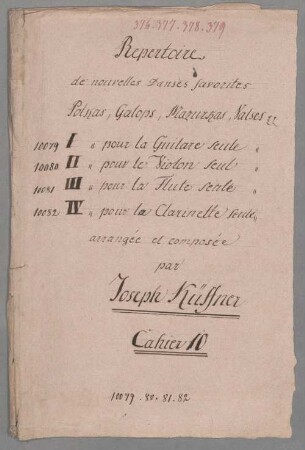 376.377.378.379
Repertoire
de nouvelles Danses favorites
Polkas, Galops, Mazurkas, Valses &
10079 I " pour la Guitare seule "
10080 II " pour le Violon seul "
10081 III " pour la Flute seule "
10082 IV " pour la Clarinette seule "
arrangée et composée
par
Joseph Küffner
Cahier 10
10079.80.81.82